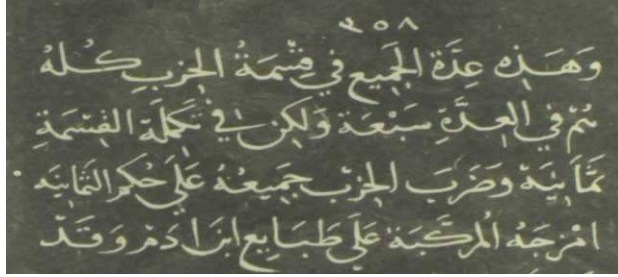 ٣٥٨
وَهَذِهِ عِدَّةُ الْجَمِيعِ فِي قِسْمَةُ الْحِزْبِ كُلهُ
ثم فِي العِدَّةِ سَبْعَة وَلكِن فِي تَكملَةِ القِسْمَةِ
ثَمَانِيَة وَضَرَبَ الْحِزْبِ جَمِيعُهُ عَلَى حُكمِ الثَّمَانِيَه
امْزِجَهُ الْمُرَكَّبَة عَلَى طَبَايِعِ ابْنَ ادَمْ وَقَدْ